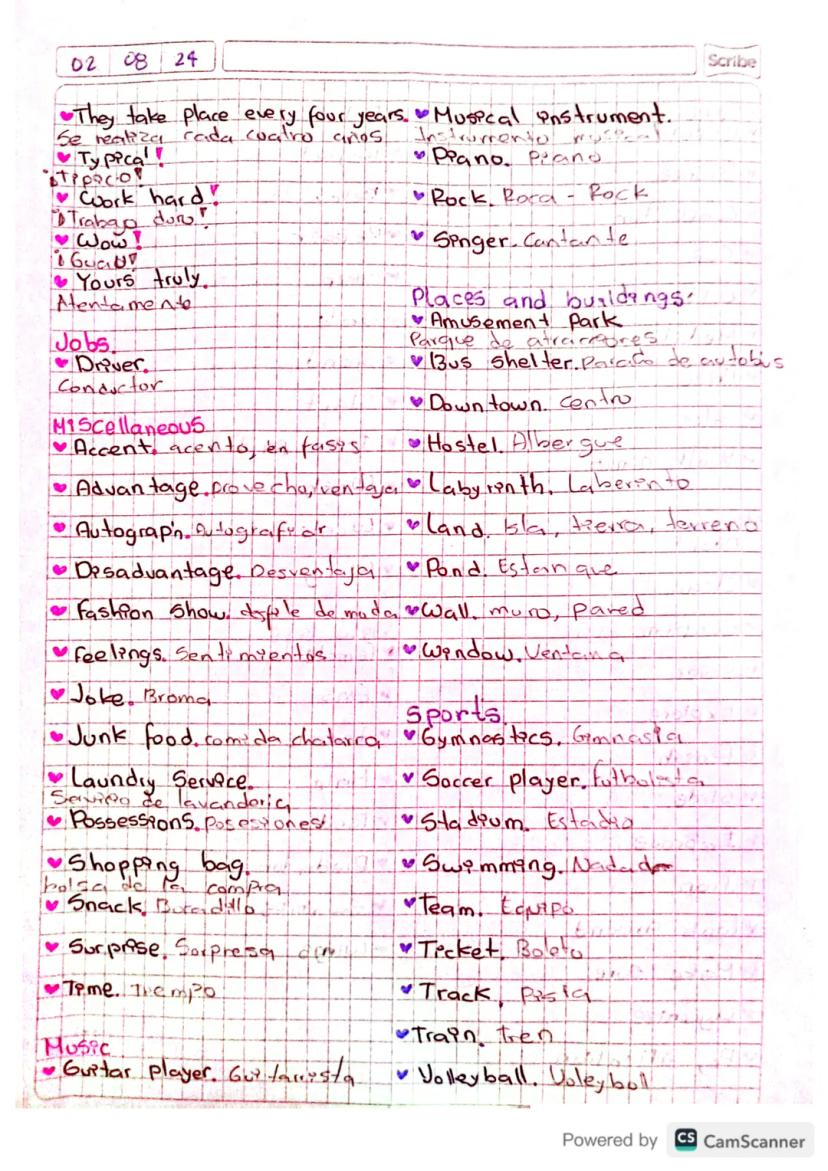 02 08 24
Scribe
They take place every four years.
Se realiza cada cuatro años
Typical!
¡Tipico!
Work hard!
¡Trabajo duro!
Wow!
¡Guau!
Yours truly.
Atentamente
Jobs.
Driver.
Conductor
Miscellaneous
Accent. acento, en fasis
Advantage. provecho, ventaja
Autograph. Autografiar
Disadvantage. Desventaja
Fashion Show. desfile de moda
Feelings. Sentimientos
Joke. Broma
Junk food. comida chatarra
Laundry Service.
Servicio de lavanderia
Possessions. posesiones
Shopping bag.
bolsa de la compra
Snack. Bocadillo
Surprise. Sorpresa
Time. Tiempo
Music
Guitar player. Guitarrista
Musical instrument.
Instrumento musical
Piano. Piano
Rock. Roca - Rock
Singer. Cantante
Places and buildings.
Amusement Park
Parque de atracciones
Bus shelter. Parada de autobis
Downtown. Centro
Hostel. Albergue
Labyrinth. Laberinto
Land. Isla, tierra, terreno
Pond. Estanque
Wall. muro, pared
Window. Ventana
Sports.
Gymnastics. Gimnasia
Soccer player. Futbolista
Stadium. Estadio
Swimming.
Team. Equipo
Ticket. Boleto
Track. Pista
Train. tren
Volleyball. Voleybol
Powered by CS CamScanner